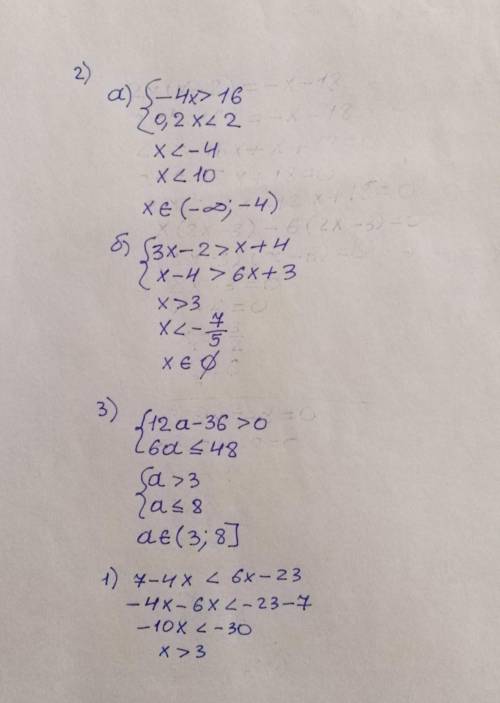 2)
а) { -4x > 16
0,2x < 2
x < -4
x < 10
x ∈ (-∞; -4)
б) { 3x - 2 > x + 4
x - 4 > 6x + 3
x > 3
x < - 7/5
x ∈ ∅
3)
{ 12a - 36 > 0
6a ≤ 48
{ a > 3
a ≤ 8
a ∈ (3; 8]
1) 7 - 4x < 6x - 23
-4x - 6x < -23 - 7
-10x < -30
x > 3